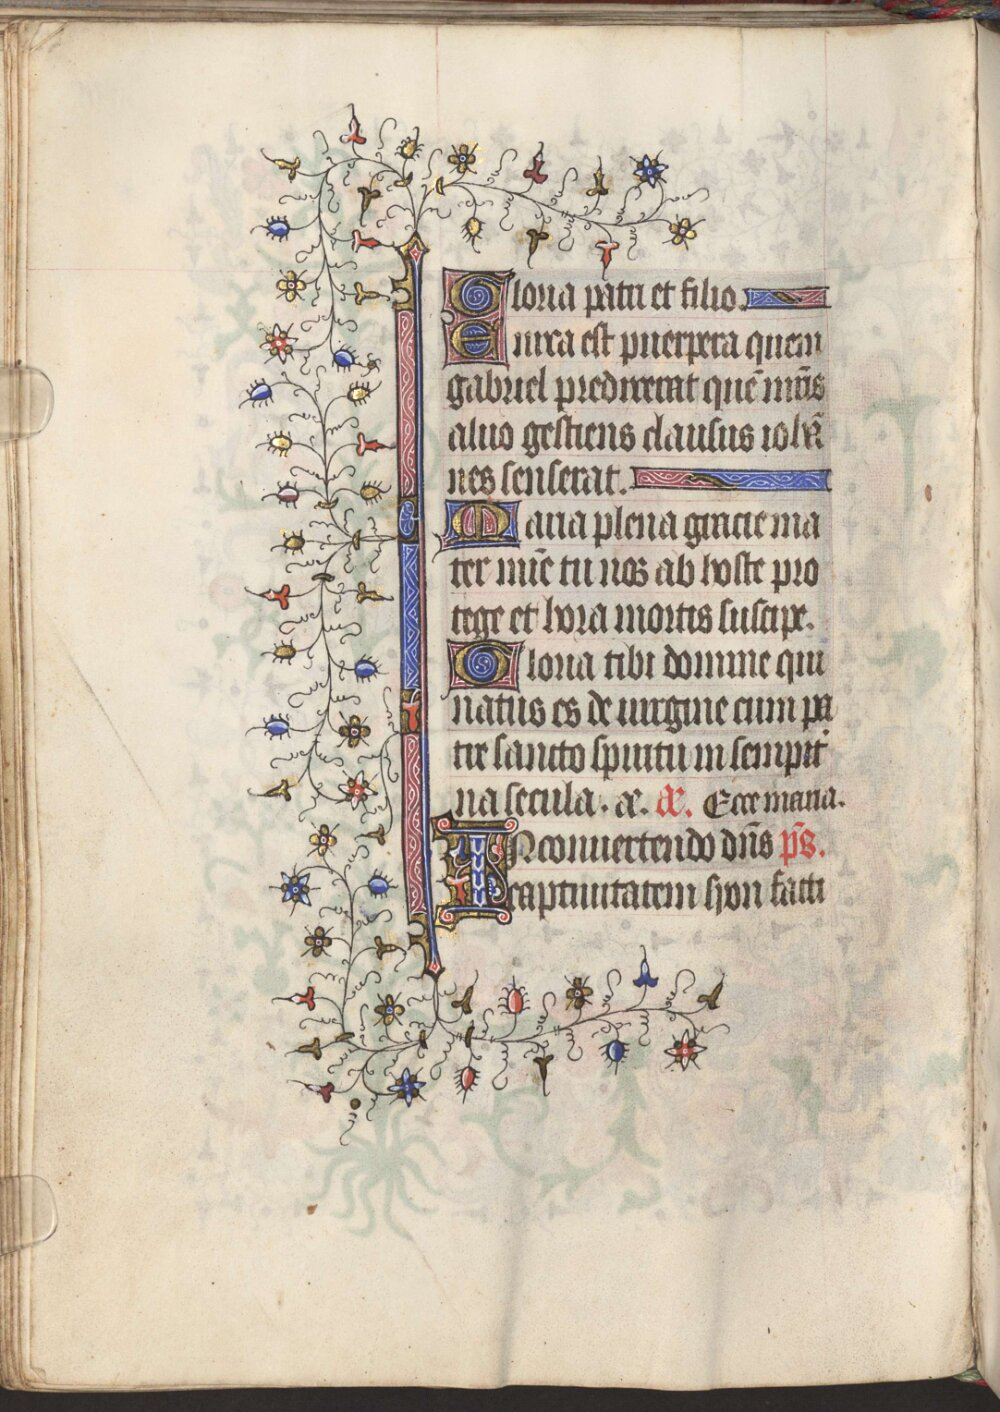 Gloria patri et filio.
Enixa est puerpera quem
gabriel predixerat quē mr̄is
aluo gestiens clausus iohā
nes senserat.
Maria plena gracie ma
ter mīe tu nos ab hoste pro
tege et hora mortis suscipe.
Gloria tibi domine qui
natus es de uirgine cum pa
tre sancto spiritu in sempit̄
na secula. æ. æ. Ecce maria.
IN conuertendo dn̄s p̄s.
captiuitatem syon facti